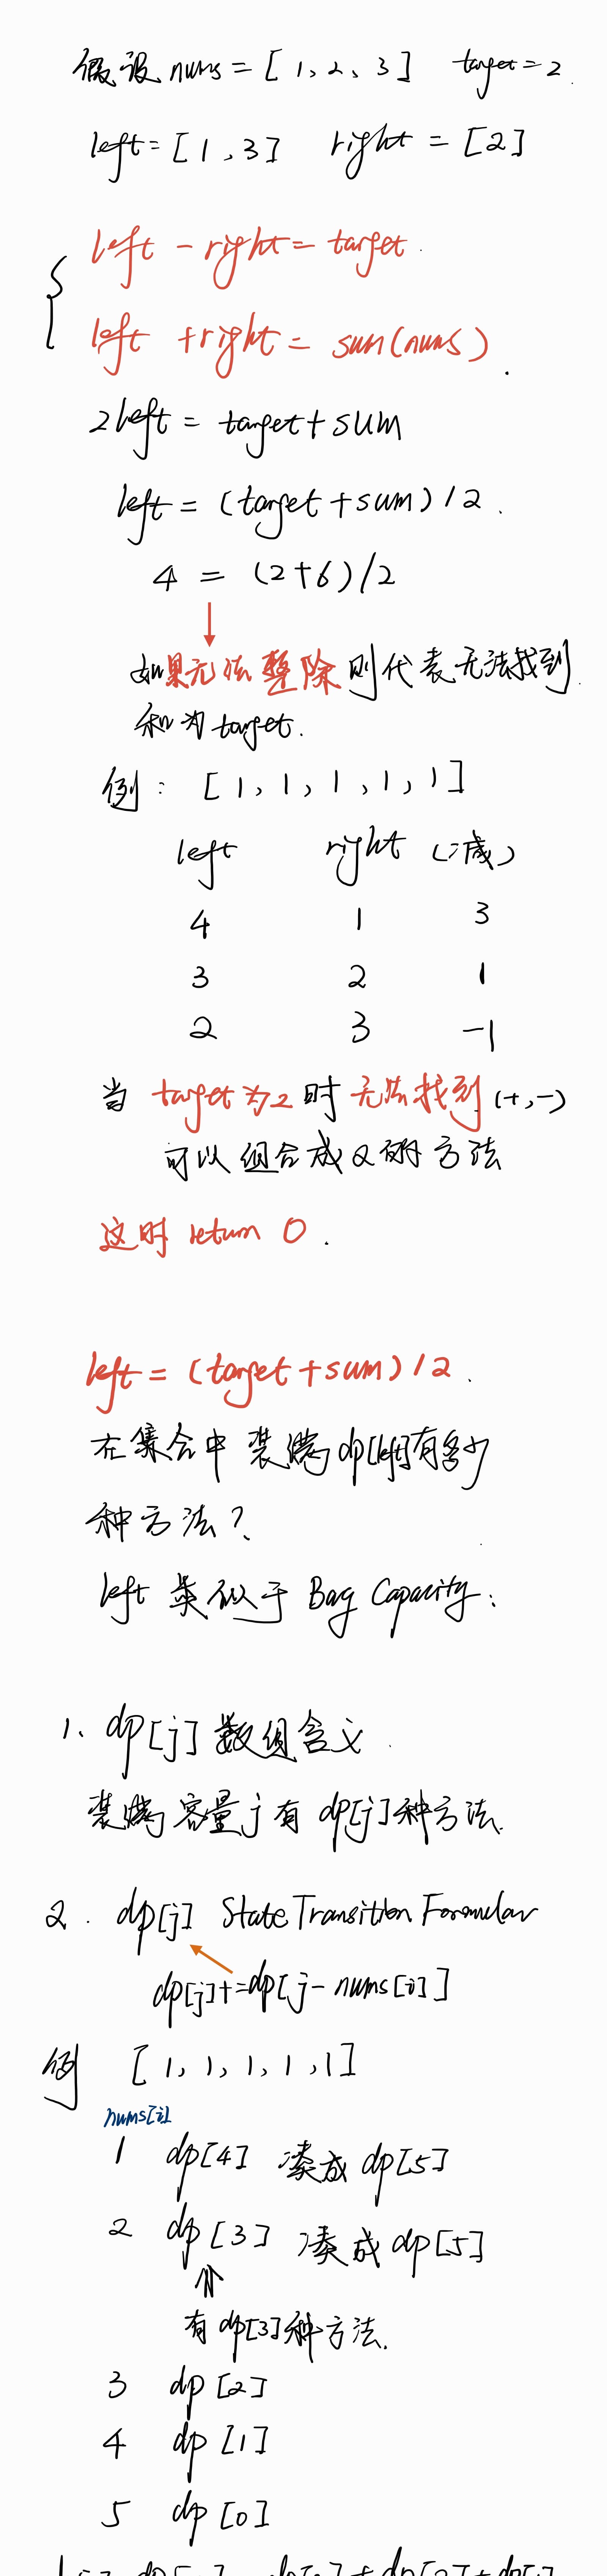 假设 nums = [ 1, 2, 3 ] target = 2.
left = [ 1, 3 ] right = [ 2 ]
left - right = target.
left + right = sum(nums).
2left = target + sum
left = (target + sum) / 2.
4 = (2+6)/2
如果无法整除则代表无法找到
和为 target.
例: [ 1, 1, 1, 1, 1 ]
left right (减)
4 1 3
3 2 1
2 3 -1
当 target 为 2 时 无法找到 (+,-)
可以组合成 2 的 方法
这时 return 0.
left = (target + sum) / 2.
在集合中 装满 dp[left]有多少
种方法?
left 类似于 Bag Capacity.
1. dp[j] 数组含义.
装满容量 j 有 dp[j] 种方法.
2. dp[j] State Transition Formular
dp[j]+=dp[j - nums[i]]
例 [ 1, 1, 1, 1, 1 ]
nums[i]
1 dp[4] 凑成 dp[5]
2 dp[3] 凑成 dp[5]
有 dp[3] 种方法.
3 dp[2]
4 dp[1]
5 dp[0]